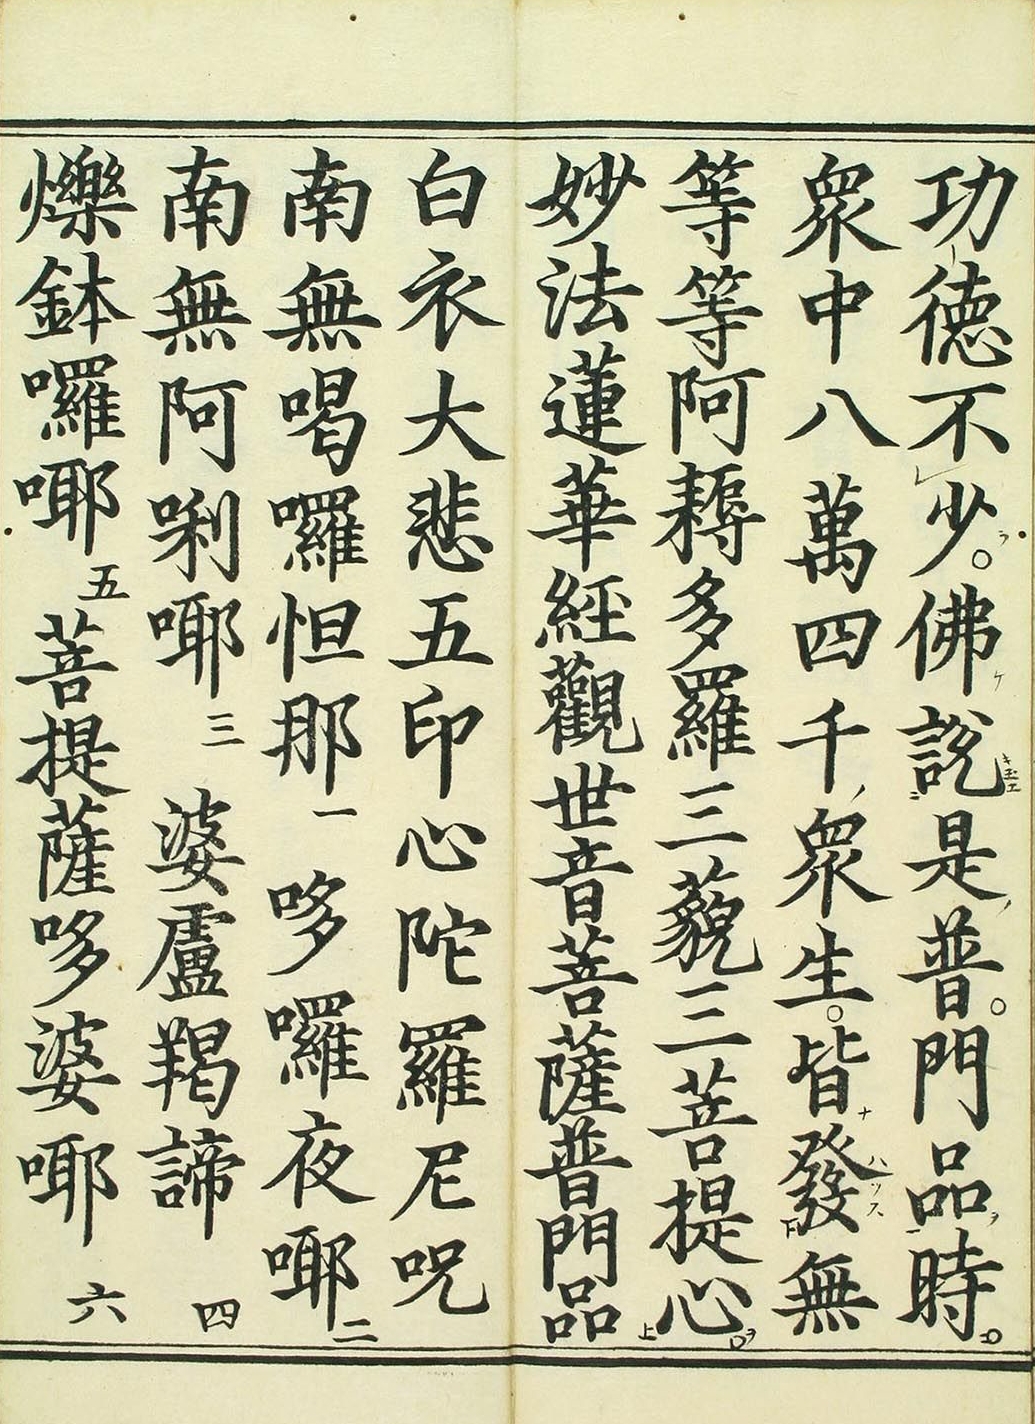 功德不少。佛說是普門品時
衆中八萬四千衆生。皆發無
等等阿耨多羅三藐三菩提心
妙法蓮華經觀世音菩薩普門品
白衣大悲五印心陀羅尼呪
南無喝囉怛那一 哆囉夜㖿二
南無阿唎㖿三 婆盧羯諦四
爍鉢囉㖿五菩提薩哆婆㖿六